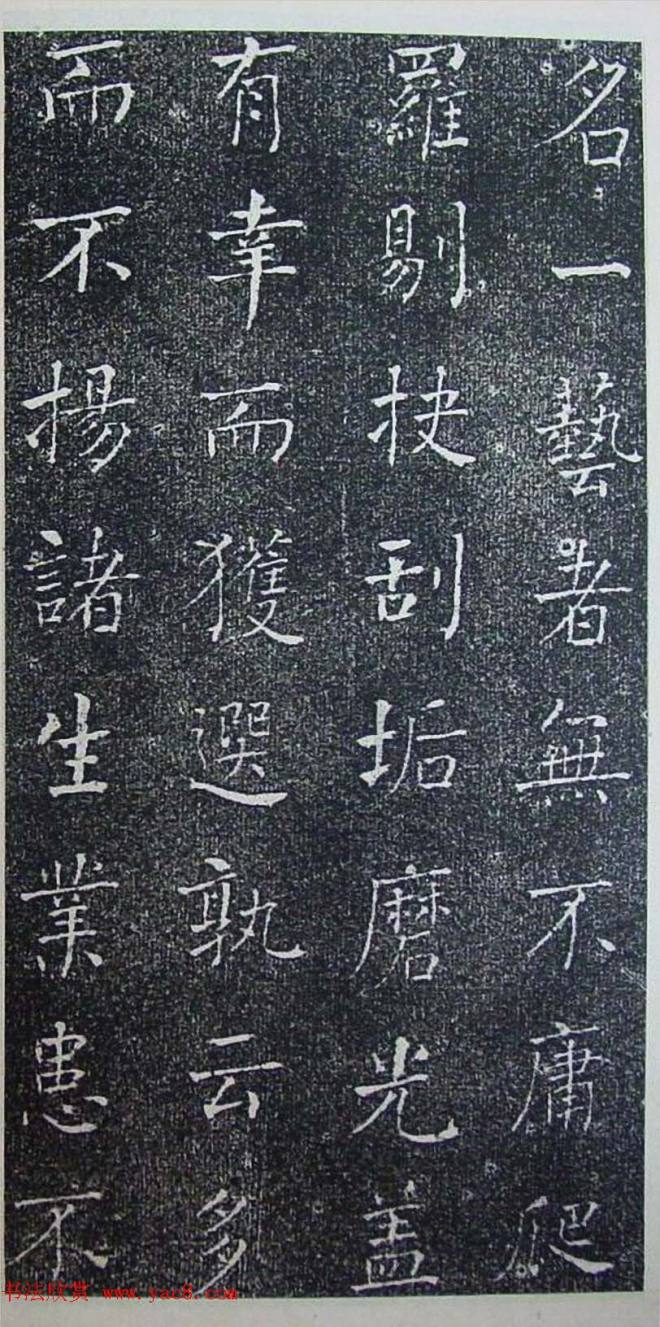 名一藝者無不庸爬
羅剔抉刮垢磨光蓋
有幸而獲選孰云多
而不揚諸生業患不
书法欣赏 www.yac8.com